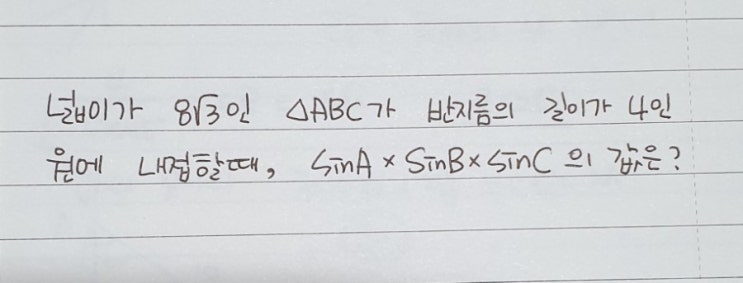 넓이가 8√3인 △ABC가 반지름의 길이가 4인
원에 내접할때, sinA × sinB × sinC 의 값은?